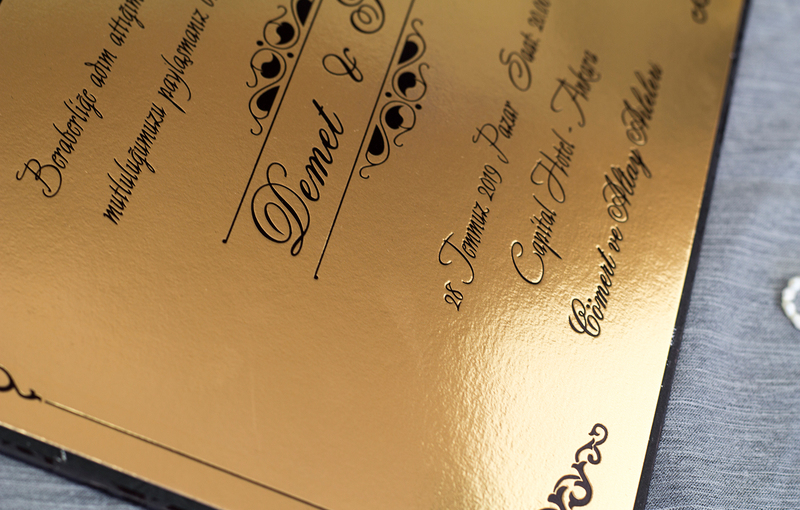 Beraberliğe adım attığım
mutluluğumuzu paylaşmanız
Demet &
28 Temmuz 2019 Pazar Saat: 20.00
Capital Hotel - Ankara
Cömert ve Altay Aileleri